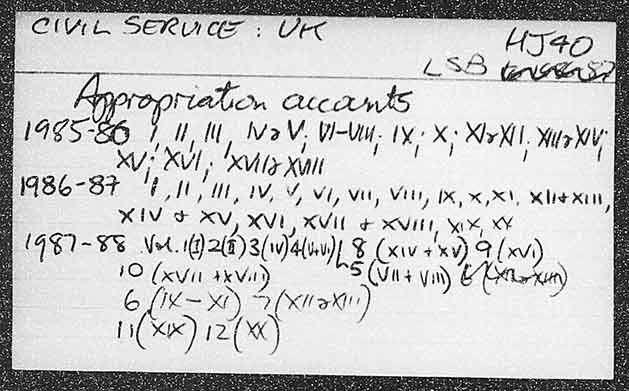 CIVIL SERVICE : UK
HJ40
LSB
Appropriation accounts
1985-86 I, II, III, IV & V; VI-VIII; IX; X; XI & XII; XIII & XIV;
XV; XVI; XVII & XVIII
1986-87 I, II, III, IV, V, VI, VII, VIII, IX, X, XI, XII & XIII,
XIV & XV, XVI, XVII & XVIII, XIX, XX
1987-88 Vol. 1(I) 2(II) 3(IV) 4(V+VI) 8 (XIV + XV) 9 (XVI)
10 (XVII + XVIII) 5 (VII + VIII)
6 (IX - XI) 7 (XII & XIII)
11 (XIX) 12 (XX)